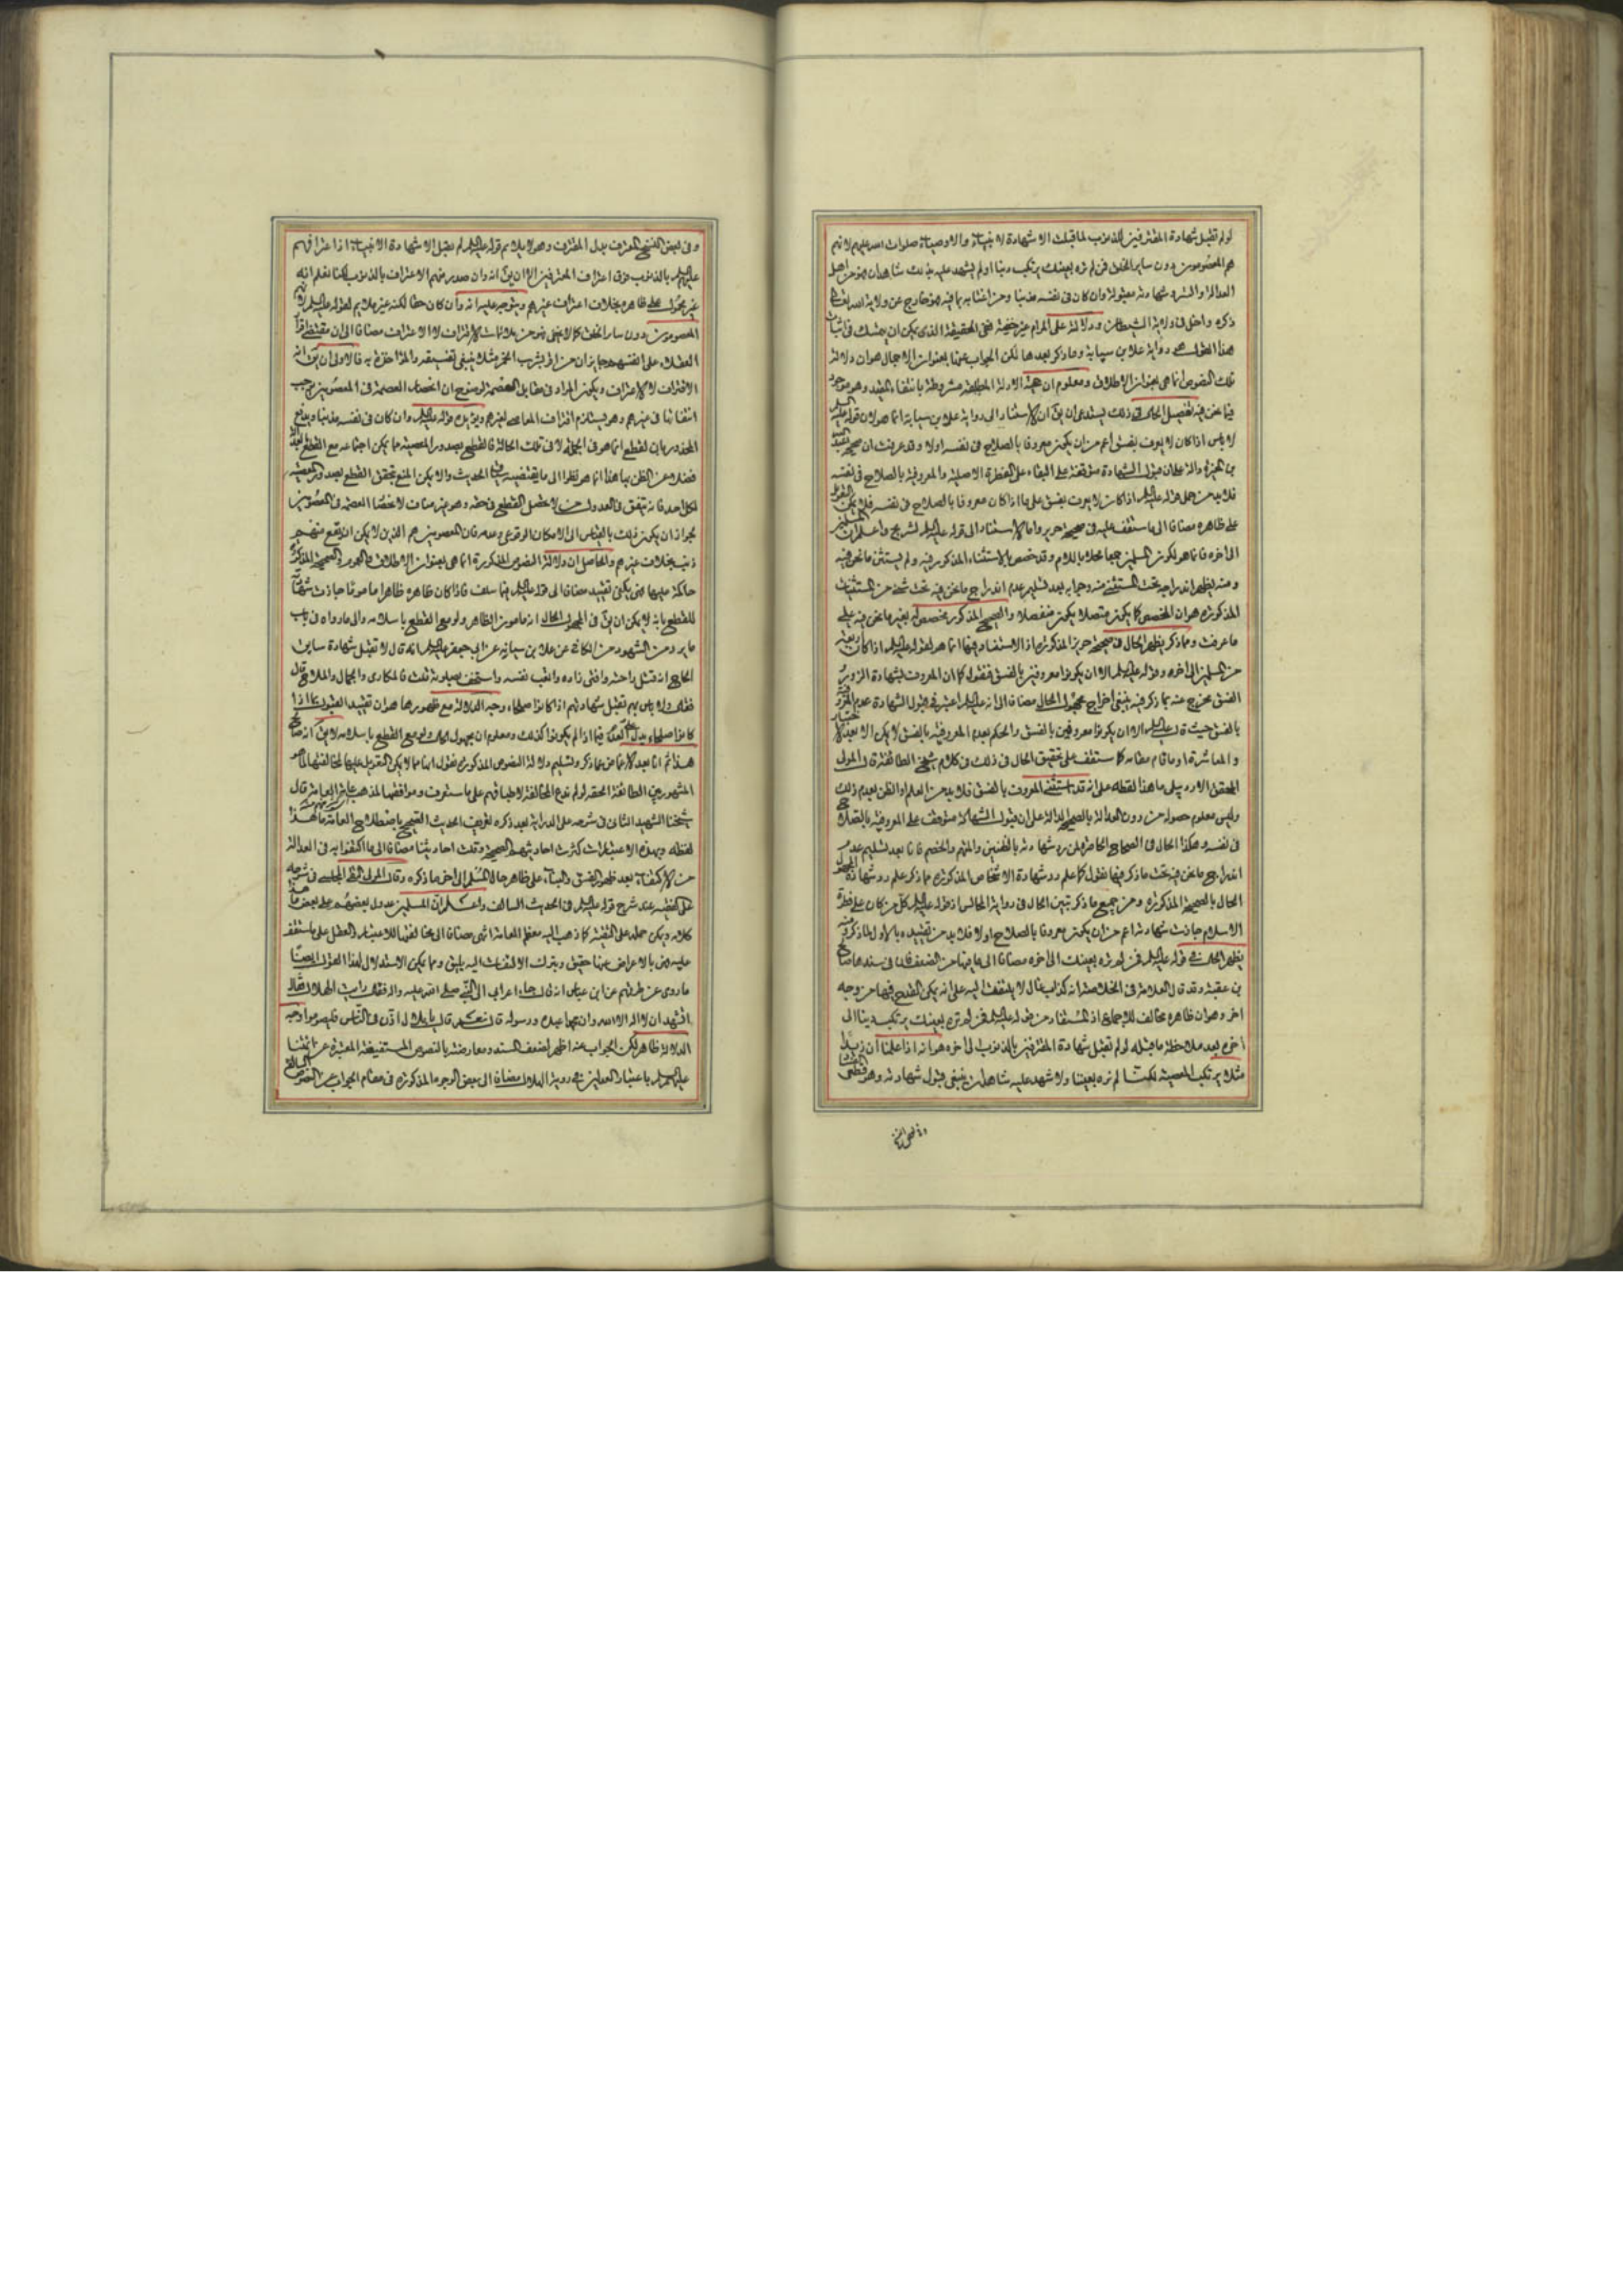 لو لم تقبل شهادة المقترفين للذنوب لما قبلت الا شهادة الانبياء والاوصياء صلوات الله عليهم لانهم
هم المعصومون دون ساير الخلق فمن لم تره بعينك يرتكب ذنبا او لم يشهد عليه بذلك شاهدان فهو من اهل
العدالة والستر وشهادته مقبولة وان كان في نفسه مذنبا ومن اغتابه بما فيه فهو خارج عن ولاية الله تعالى
ذكره داخل في ولاية الشيطان ودلالته على المرام غير خفية ففي الحقيقة الذي يمكن ان يتمسك في اثبات
هذا القول هي رواية علاء بن سيابة وما ذكر بعدها لكن الجواب عنها بعنوان الاجمال هو ان دلالة
تلك النصوص انما هي بعنوان الاطلاق ومعلوم ان هذه الادلة المطلقة مشروطة بانتفاء المقيد وهو موجود
فيما نحن فيه تفصيل الحال في ذلك يستدعي ان يق ان الاستناد الى رواية علاء بن سيابة انما هو لان قوله عليه السلم
لا باس اذا كان لا يعرف بفسق اعم من ان يكون معروفا بالصلاح في نفسه اولا وقد عرفت ان صحيحة عبد الله
بن المغيرة دالة على ان قبول الشهادة متوقفة على البقاء على الفطرة الاصلية والمعروفية بالصلاح في نفسه
فلا بد من حمل قوله عليه السلم اذا كان لا يعرف بفسق على ما اذا كان معروفا بالصلاح في نفسه فلا يمكن التعويل
على ظاهره مضافا الى ما ستقف عليه في صحيحة حريز واما الاستناد الى قوله عليه السلم لشريح واعلم ان المسلمين
الى اخره فانما هو لكون المسلمين جمعا محلا باللام وقد خصص بالاستثناء المذكور فيه ولم يستثن ما نحن فيه
ومنه يظهر اندراجه تحت المستثنى منه وجوابه بعد تسليم عدم اندراج ما نحن فيه تحت شيء من المستثنيات
المذكورة هو ان المخصص كما يكون متصلا يكون منفصلا والصحيح المذكور مخصص له بغير ما نحن فيه على
ما عرفت ومما ذكر يظهر الحال في صحيحة حريز المذكورة اذ الاستفادة فيها انما هو لقوله عليه السلم اذا كان اربعة
من المسلمين الى اخره وقوله عليه السلم الا ان يكونوا معروفين بالفسق فنقول كما ان المعروف بشهادة الزور
الفسق مخرج عنه بما ذكر فيه ينبغي اخراج مجهول الحال مضافا الى انه عليه السلم اعتبر في قبول الشهادة عدم المعروفية
بالفسق حيث قال عليه السلم الا ان يكونوا معروفين بالفسق والحكم بعدم المعروفية بالفسق لا يمكن الا بعد الاختبار
والمعاشرة او ما قام مقامه كما ستقف على تحقيق الحال في ذلك في كلام شيخ الطائفة قال المولى
المحقق الاردبيلي ما هذا لفظه على انه قد استثنى المعروف بالفسق فلا بد من العلم او الظن بعدم ذلك
وليس معلوم حصوله من دون العدالة بالصحيحة الدالة على ان قبول الشهادة متوقف على المعروفية بالصلاح
في نفسه وهكذا الحال في الصحاح الحاضرة لمن رد شهادته بالظنين والمتهم والخصم فانا بعد تسليم عدم
اندراج ما نحن فيه تحت ما ذكر فيها نقول كما علم رد شهادة الاشخاص المذكورة مما ذكر علم رد شهادة المجهول
الحال بالصحيحة المذكورة ومن جميع ما ذكر تبين الحال في رواية المجالس اذ قوله عليه السلم كل من كان على فطرة
الاسلام جازت شهادته اعم من ان يكون معروفا بالصلاح اولا فلا بد من تقييده بالاول لما ذكر ومنه
يظهر الحال في قوله عليه السلم فمن لم تره بعينك الى اخره مضافا الى ما فيها من الضعف فان في سندها صالح
بن عقبة وقد قال العلامة في الخلاصة انه كذاب غال لا يلتفت اليه على انه يمكن القدح فيها من وجه
اخر وهو ان ظاهره مخالف للاجماع اذ المستفاد من قوله عليه السلم فمن لم تره بعينك يرتكب ذنبا الى
اخره بعد ملاحظة ما قبله لو لم تقبل شهادة المقترفين بالذنوب الى اخره هو انه اذا علمنا ان زيدا
مثلا يرتكب المعصية لكنا لم نره بعيننا ولا شهد عليه شاهدان ينبغي قبول شهادته وهو قطعي الفساد
وفي بعض النسخ المعترف بدل المقترف وهو لا يلائم قوله عليه السلم لم يقبل الا شهادة الانبياء اذ اعترافهم
عليهم السلم بالذنوب فوق اعتراف المعترفين الا ان يق انه وان صدر منهم الاعتراف بالذنوب لكنا نعلم انه
غير محمول على ظاهره بخلاف اعتراف غيرهم ويتوجه عليه انه وان كان حقا لكنه غير ملائم لقوله عليه السلم لانهم
المعصومون دون ساير الخلق كما لا يخفى فهو من ملائمات الاقتراف لا الاعتراف مضافا الى ان مقتضى اقرار
العقلاء على انفسهم جايز ان من اقر بشرب الخمر مثلا ينبغي تفسيقه والمؤاخذة به فالاولى ان يق انه
الاقتراف لا الاعتراف ويكون المراد في مقابل العصمة لوضوح ان اختصاص العصمة في المعصومين يوجب
انتفائها في غيرهم وهو يستلزم اقتراف المعاصي لغيرهم ويؤيده قوله عليه السلم وان كان في نفسه مذنبا ويدفع
المحذور بان القطع انما هو في الجملة لا في تلك الحالة فالقطع بصدور المعصية مما يمكن اجتماعه مع القطع بعدالة
فضلا عن الظن بها هذا انما هو نظرا الى ما يقتضيه الحديث والا يمكن المنع بتحقق القطع بصدور المعصية
لكل احد فانه يتفق في العدول من لا يحصل القطع في حقه وهو غير مناف لاختصاص العصمة في المعصومين
لجواز ان يكون ذلك بالقياس الى الامكان الوقوعي وعدمه فان المعصومين هم الذين لا يمكن ان يقع منهم
ذنب بخلاف غيرهم والحاصل ان دلالة النصوص المذكورة انما هي بعنوان الاطلاق والعموم والصحيحة المذكورة
حاكمة عليها فهي يكفي تقييده مضافا الى قوله عليه السلم فيما سلف فاذا كان ظاهره ظاهرا مامونا جازت شهادته
للقطع بانه لا يمكن ان يق في المجهول الحال انه مامون الظاهر ولو مع القطع باسلامه والى ما رواه في باب
ما يرد من الشهود من الكافي عن علاء بن سيابة عن ابي جعفر عليه السلم انه قال لا تقبل شهادة سابق
الحاج انه قتل راحلته وافنى زاده واتعب نفسه واستخف بصلوته قلت فالمكاري والجمال والملاح قال
فقال ولا باس بهم تقبل شهادتهم اذا كانوا صلحاء وجه الدلالة مع ظهورها هو ان تقييد القبول بما اذا
كانوا صلحاء يدل على العدم فيما اذا لم يكونوا كذلك ومعلوم ان مجهول الحال ولو مع القطع باسلامه لا يق انه صالح
هذا ثم انا بعد الاغماض عما ذكر وتسليم دلالة النصوص المذكورة نقول انها مما لا يمكن التعويل عليها لمخالفتها لما هو
المشهور بين الطائفة المحقة لو لم ندع المخالفة لاطباقهم على ما ستعرف وموافقتها لمذهب اكثر العامة قال
شيخنا الشهيد الثاني في شرحه على الدراية بعد ذكره تعريف الحديث الصحيح باصطلاح العامة ما هذا
لفظه وبهذه الاعتبارات كثرت احاديثهم الصحيحة وقلت احاديثنا مضافا الى ما اكتفوا به في العدالة
من الاكتفاء بعدم ظهور الفسق والبناء على ظاهر حال المسلم الى اخر ما ذكره وقال المولى التقي المجلسي في شرحه
على الفقيه عند شرح قوله عليه السلم في الحديث السالف واعلم ان المسلمين عدول بعضهم على بعض ما هذا
كلامه ويمكن حمله على التقية كما ذهب اليه معظم العامة انتهى مضافا الى مخالفتها للاعتبار والعقل على ما ستقف
عليه فهي بالاعراض عنها حقيق وبترك الالتفات اليه يليق ومما يمكن الاستدلال لهذا القول ايضا
ما روي عن طرقهم عن ابن عباس انه قال جاء اعرابي الى النبي صلى الله عليه واله فقال رايت الهلال فقال
اتشهد ان لا اله الا الله وان محمدا عبده ورسوله قال نعم قال يا بلال اذن في الناس فليصوموا وجه
الدلالة ظاهر لكن الجواب عنه اظهر لضعف السند ومعارضته بالنصوص المستفيضة المعتبرة عن ائمتنا
عليهم السلم باعتبار العدلين في روية الهلال مضافا الى بعض الوجوه المذكورة في مقام الجواب عن النصوص السالفة